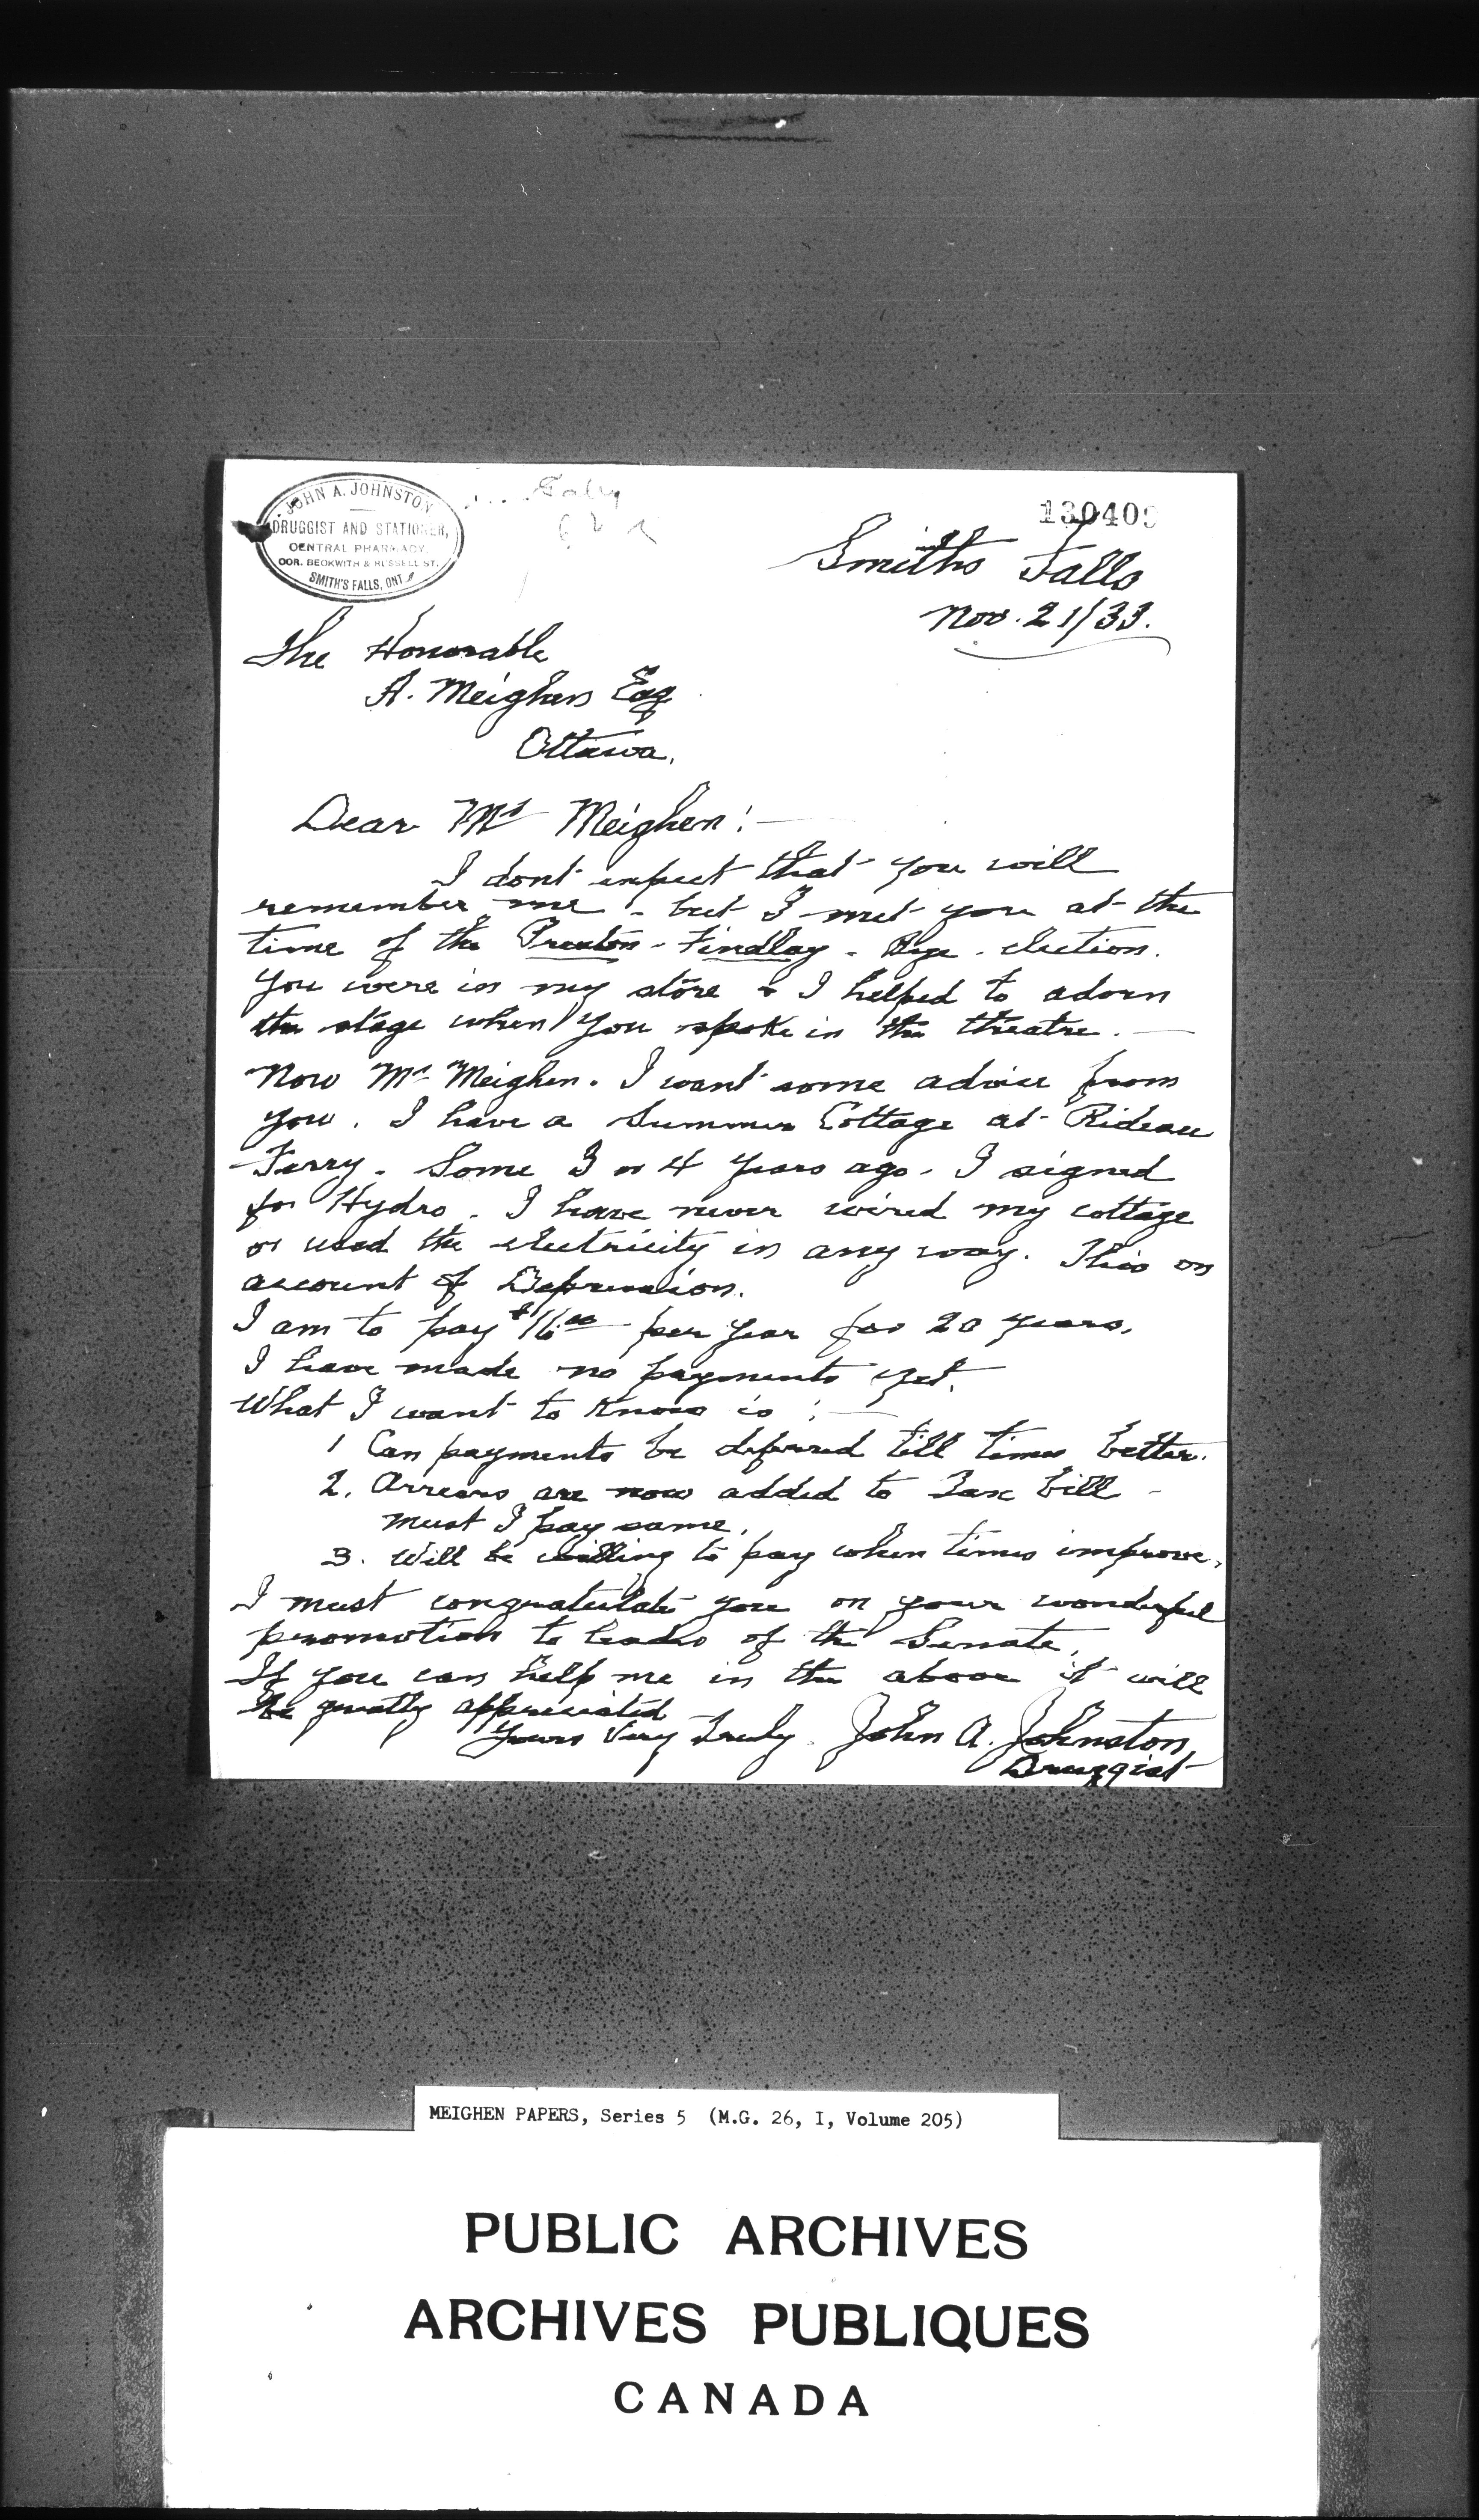 JOHN A. JOHNSTON
DRUGGIST AND STATIONER,
CENTRAL PHARMACY,
COR. BECKWITH & RUSSELL ST.
SMITH'S FALLS, ONT.
13040
Smiths Falls
Nov. 21/33.
The Honorable
A. Meighen Esq
Ottawa.
Dear Mr Meighen:—
I dont expect that you will
remember me - but I met you at the
time of the Preston - Findlay - Bye - election.
You were in my store & I helped to adorn
the stage when you spoke in the theatre. —
Now Mr Meighen. I want some advice from
you. I have a Summer Cottage at Rideau
Ferry. Some 3 or 4 years ago. I signed
for Hydro. I have never wired my cottage
or used the electricity in any way. This on
account of Depression.
I am to pay $16.00 per year for 20 years.
I have made no payments yet.
What I want to know is :—
1 Can payments be deferred till times better.
2. Arrears are now added to Tax bill -
must I pay same.
3. Will be willing to pay when times improve.
I must congratulate you on your wonderful
promotion to leader of the Senate.
If you can help me in the above it will
be greatly appreciated
Yours Very Truly. John A. Johnston,
Druggist
MEIGHEN PAPERS, Series 5 (M.G. 26, I, Volume 205)
PUBLIC ARCHIVES
ARCHIVES PUBLIQUES
CANADA